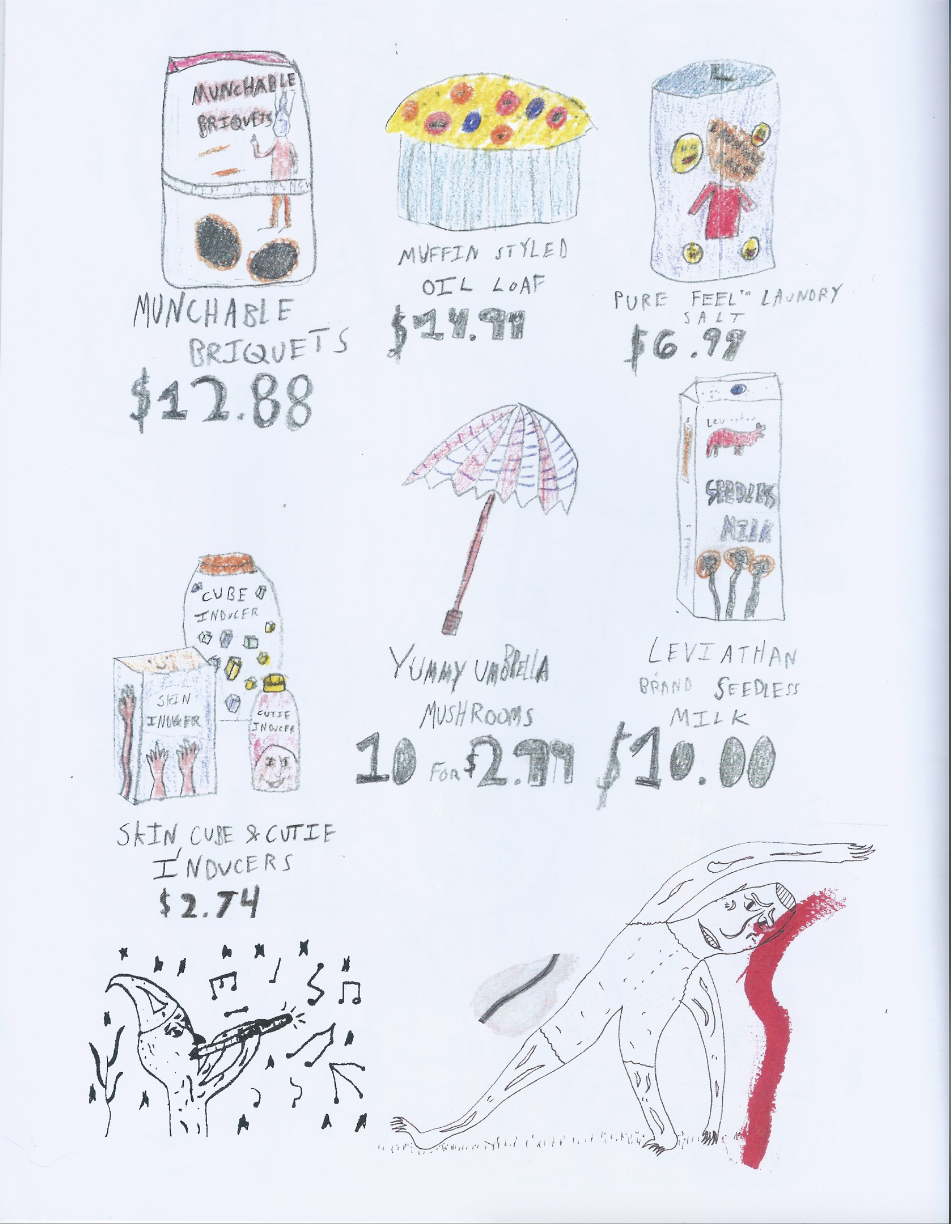 MUNCHABLE
BRIQUETS
MUNCHABLE
BRIQUETS
$12.88
MUFFIN STYLED
OIL LOAF
$14.99
PURE FEEL™ LAUNDRY
SALT
$6.99
CUBE
INDUCER
SKIN
INDUCER
CUTIE
INDUCER
SKIN CUBE & CUTIE
INDUCERS
$2.74
YUMMY UMBRELLA
MUSHROOMS
10 FOR $2.99
SEEDLESS
MILK
LEVIATHAN
BRAND SEEDLESS
MILK
$10.00